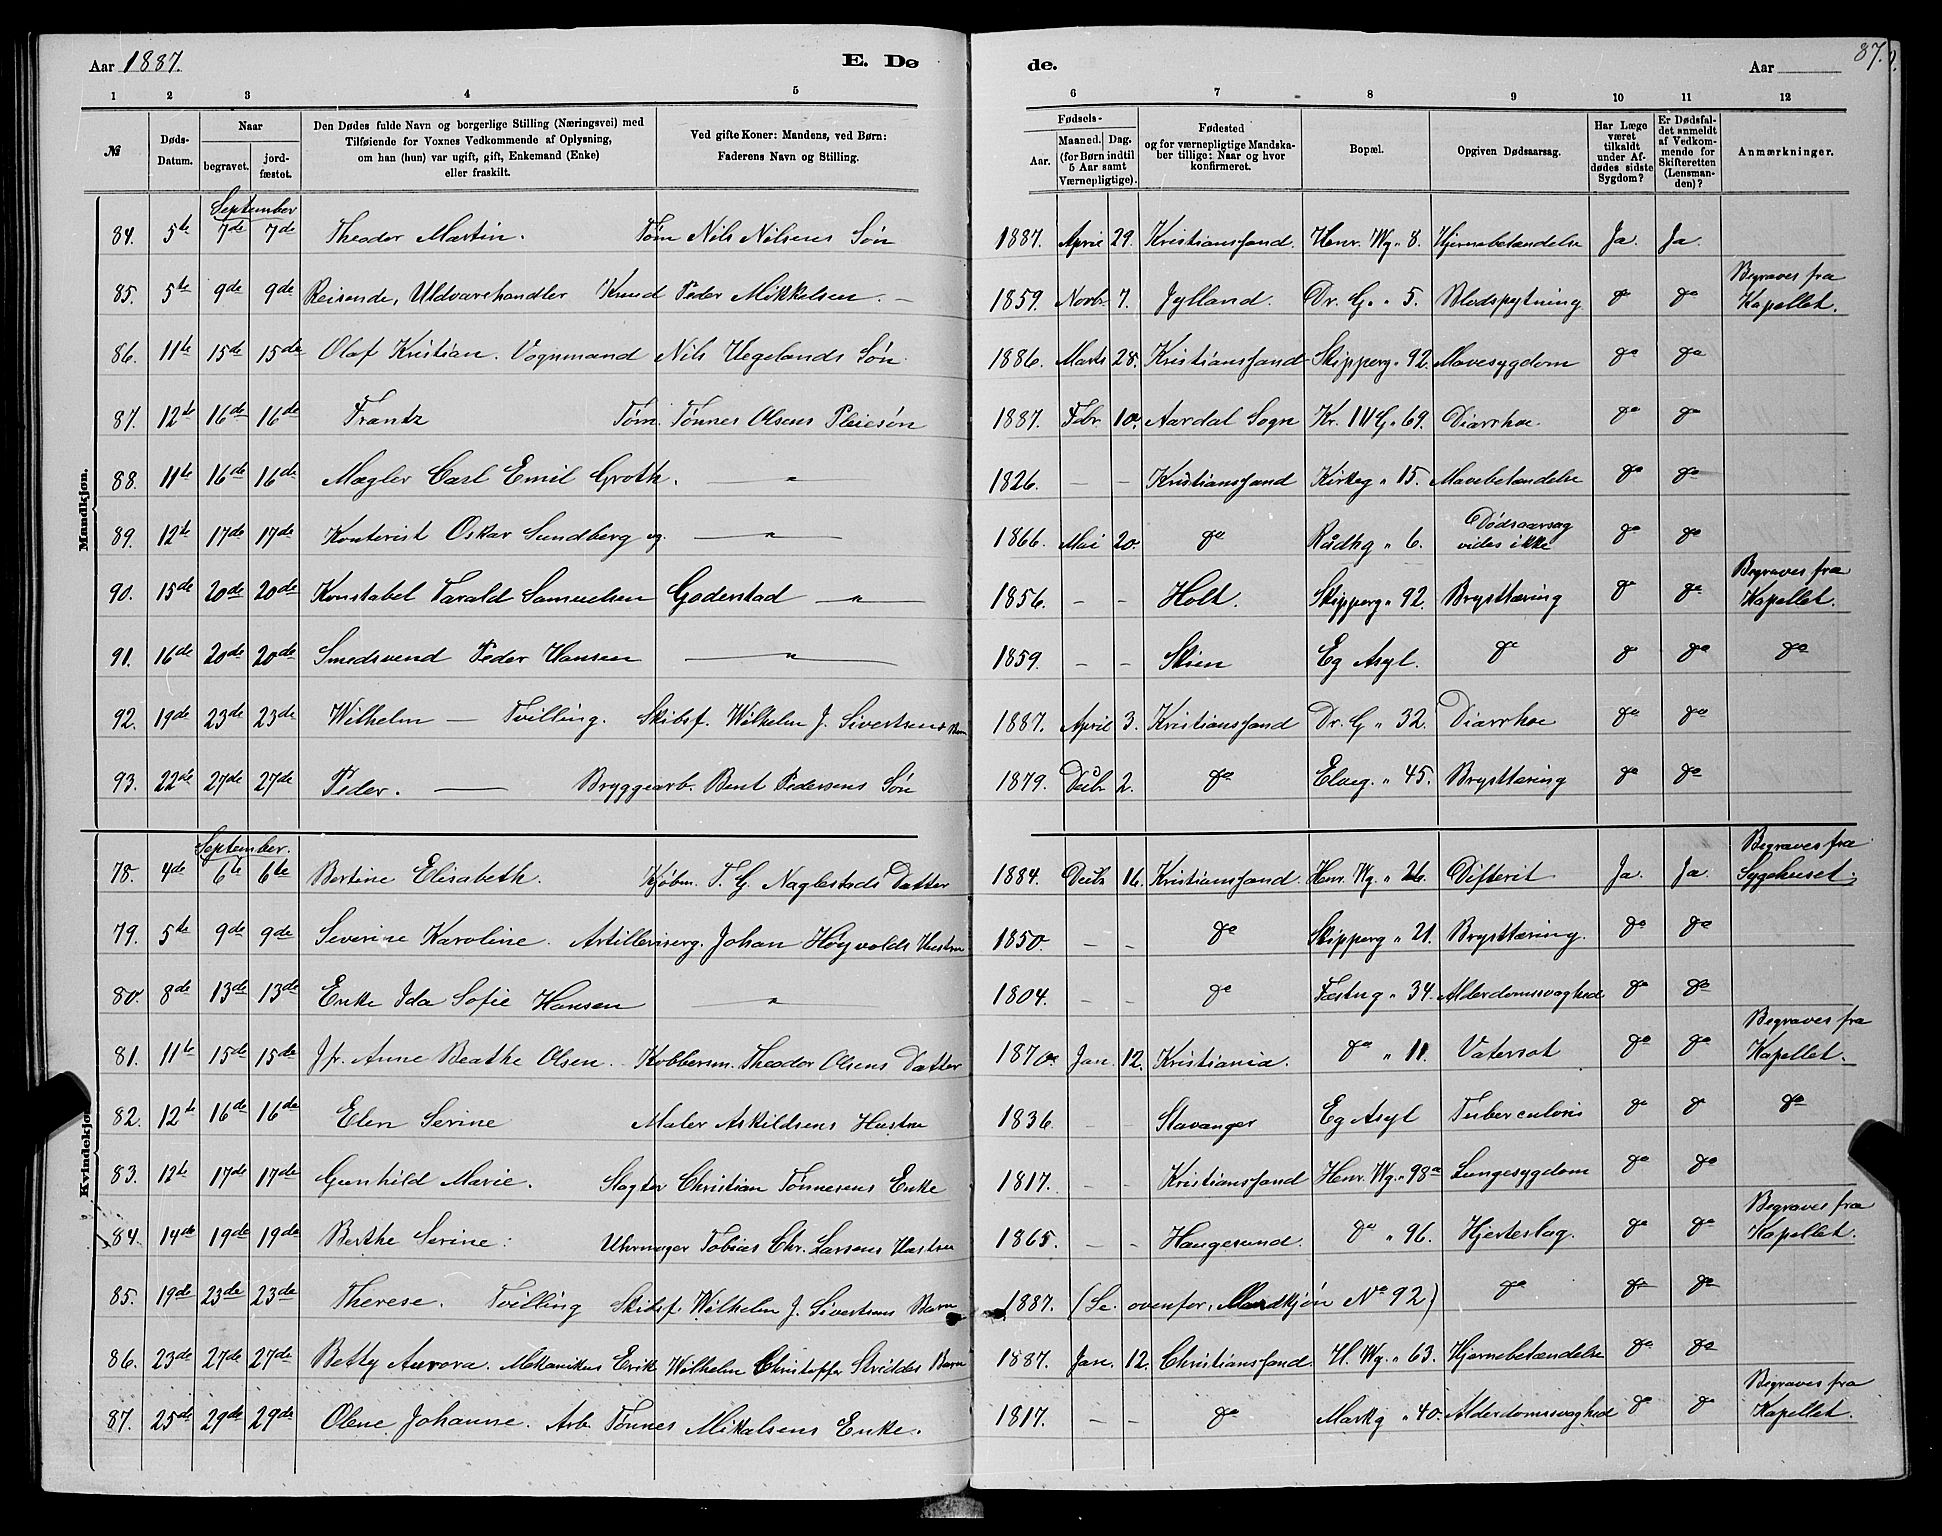 Aar 1887. E. Dø de. Aar 87.
1 2 3 4 5 6 7 8 9 10 11 12
№ Døds-Datum. Naar begravet. jordfæstet. Den Dødes fulde Navn og borgerlige Stilling (Næringsvei) med Tilføiende for Voxnes Vedkommende af Oplysning, om han (hun) var ugift, gift, Enkemand (Enke) eller fraskilt. Ved gifte Koner: Mandens, ved Børn: Faderens Navn og Stilling. Fødsels- Aar. Maaned. Dag. (for Børn indtil 5 Aar samt Værnepligtige). Fødested og for værnepligtige Mandskaber tillige: Naar og hvor konfirmeret. Bopæl. Opgiven Dødsaarsag. Har Læge været tilkaldt under Afdødes sidste Sygdom? Er Dødsfaldet anmeldt af Vedkommende for Skifteretten (Lensmanden)? Anmærkninger.
Mandkjøn.
September
84. 5te 7de 7de Theodor Martin. Tøm Nils Nilsens Søn 1887. April 29. Kristianssand. Henr. Wg. 8. Hjernebetændelse Ja. Ja.
85. 5te 9de 9de Reisende, Uldvarehandler Knud Peder Mikkelsen. – 1859. Novbr 7. Jylland. Dr. G. " 5. Blodspytning do do Begraves fra Kapellet.
86. 11te 15de 15de Olaf Kristian. Vognmand Nils Uegelands Søn 1886. Marts 28. Kristianssand Skipperg " 92. Mavesygdom do do
87. 12te 16de 16de Frantz Tøm. Tønnes Olsens Pleiesøn 1887. Febr 10. Aardal Sogn Kr. IV G. 69. Diarrhoe. do do
88. 11te 16de 16de Mægler Carl Emil Groth. " 1826. – – Kristianssand Kirkeg " 15. Mavebetændelse do do
89. 12te 17de 17de Kontorist Oskar Sundberg ug. " 1866. Mai 20. do Rådhg " 6. Dødsaarsag vides ikke do do
90. 15de 20de 20de Konstabel Tarald Samuelsen Goderstad " 1856. – – Holt. Skipperg " 92. Brysttæring do do Begraves fra Kapellet.
91. 16de 20de 20de Smedsvend Peder Hansen " 1859. – – Skien Eg Asyl. do do do do
92. 19de 23de 23de Wilhelm — Tvilling. Skibsf. Wilhelm J. Sivertsens Barn 1887. April 3. Kristianssand Dr. G " 32. Diarrhoe do do
93. 22de 27de 27de Peder. — Bryggearb. Bent Pedersens Søn 1879. Decbr 2. do Elveg. " 45. Brysttæring do do
Kvindekjøn.
September.
78. 4de 6te 6te Bertine Elisabeth. Kjøbm. T. G. Naglestads Datter 1884. Decbr 16. Kristianssand. Henr. Wg. " 26. Difterit Ja. Ja. Begraves fra Sygehuset.
79. 5te 9de 9de Severine Karoline. Artilleriserg. Johan Høyvolds Hustru 1850. – – do Skipperg " 21. Brysttæring. do do
80. 8de 13de 13de Enke Ida Sofie Hansen " 1804. – – do Fæstng " 34. Alderdomssvaghed do do
81. 11te 15de 15de Jfr. Anne Beathe Olsen. Kobbersm. Theodor Olsens Datter 1870. Jan. 12. Kristiania. do " 11. Vatersot do do Begraves fra Kapellet.
82. 12te 16de 16de Elen Serine Maler Askildsens Hustru 1836. – – Stavanger Eg Asyl Tuberculosis do do do
83. 12te 17de 17de Gunhild Marie. Slagter Christian Tønnesens Enke 1817. – – Kristianssand Henr. Wg. " 98a Lungesygdom do do
84. 14de 19de 19de Berthe Serine. Uhrmager Tobias Chr. Larsens Hustru 1865. – – Haugesund. do " 96. Hjerteslag. do do Begraves fra Kapellet.
85. 19de 23de 23de Therese. Tvilling Skibsf. Wilhelm J. Sivertsens Barn 1887. (Se ovenfor, Mandkjøn No 92) do do do
86. 23de 27de 27de Betty Aurora. Mekanikus Erik Wilhelm Christoffer Skeiddes Barn 1887. Jan. 12. Christianssand. H. Wg. " 63. Hjernebetændelse do do
87. 25de 29de 29de Olene Johanne. Arb. Tønnes Mikalsens Enke. 1817. – – do Markg " 40. Alderdomssvaghed do do Begraves fra Kapellet.